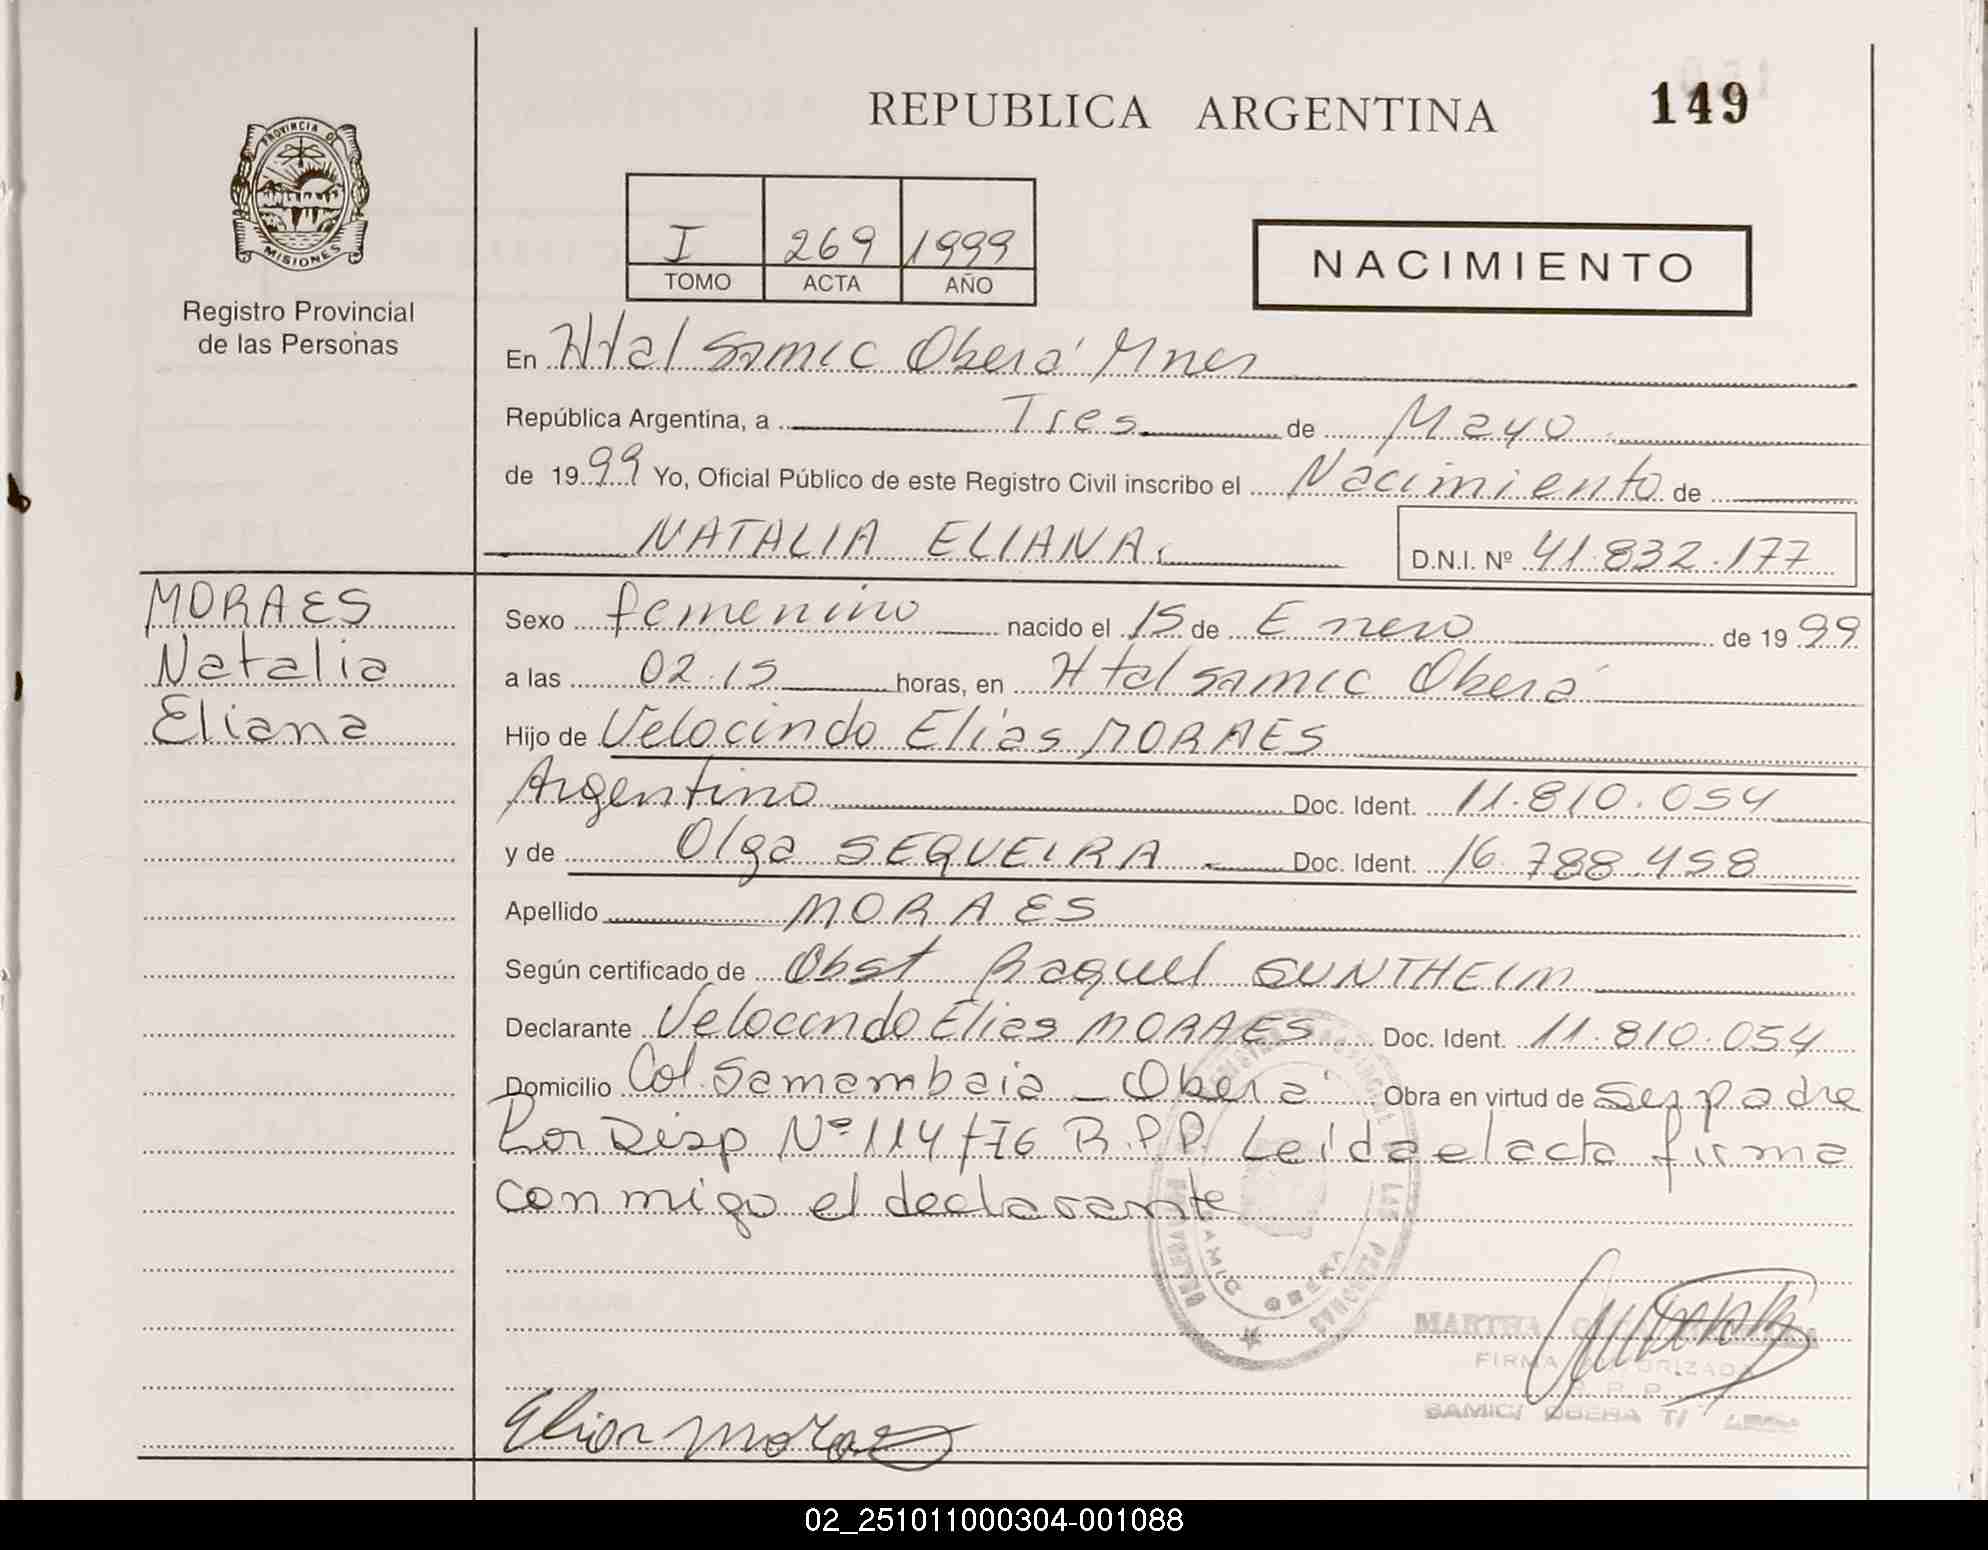 REPUBLICA ARGENTINA
149
PROVINCIA DE
MISIONES
Registro Provincial
de las Personas
I 269 1999
TOMO ACTA AÑO
NACIMIENTO
En Htal Samic Oberá Mnes
República Argentina, a Tres de Mayo
de 1999 Yo, Oficial Público de este Registro Civil inscribo el Nacimiento de
NATALIA ELIANA.
D.N.I. Nº 41.832.177
MORAES
Natalia
Eliana
Sexo femenino nacido el 15 de Enero de 1999
a las 02.15 horas, en Htal samic Oberá
Hijo de Velocindo Elias MORAES
Argentino Doc. Ident. 11.810.054
y de Olga SEQUEIRA Doc. Ident. 16.788.458
Apellido MORAES
Según certificado de Obst Raquel SUNTHEIM
Declarante Velocindo Elias MORAES Doc. Ident. 11.810.054
Domicilio Col. Samambaia - Oberá Obra en virtud de ser padre
Por Disp Nº 114/76 R.P.P. Leída el acta firma
conmigo el declarante
SAMIC OBERA
MARTHA
FIRMA AUTORIZADA
R. P. P.
SAMIC/ OBERA
Elias Moraes
02_251011000304-001088